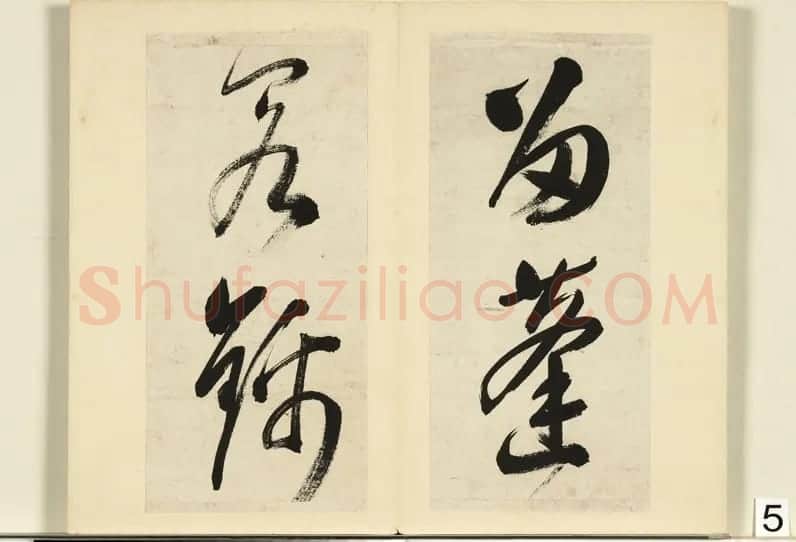 留蓬
客
Shufaziliao.COM
5